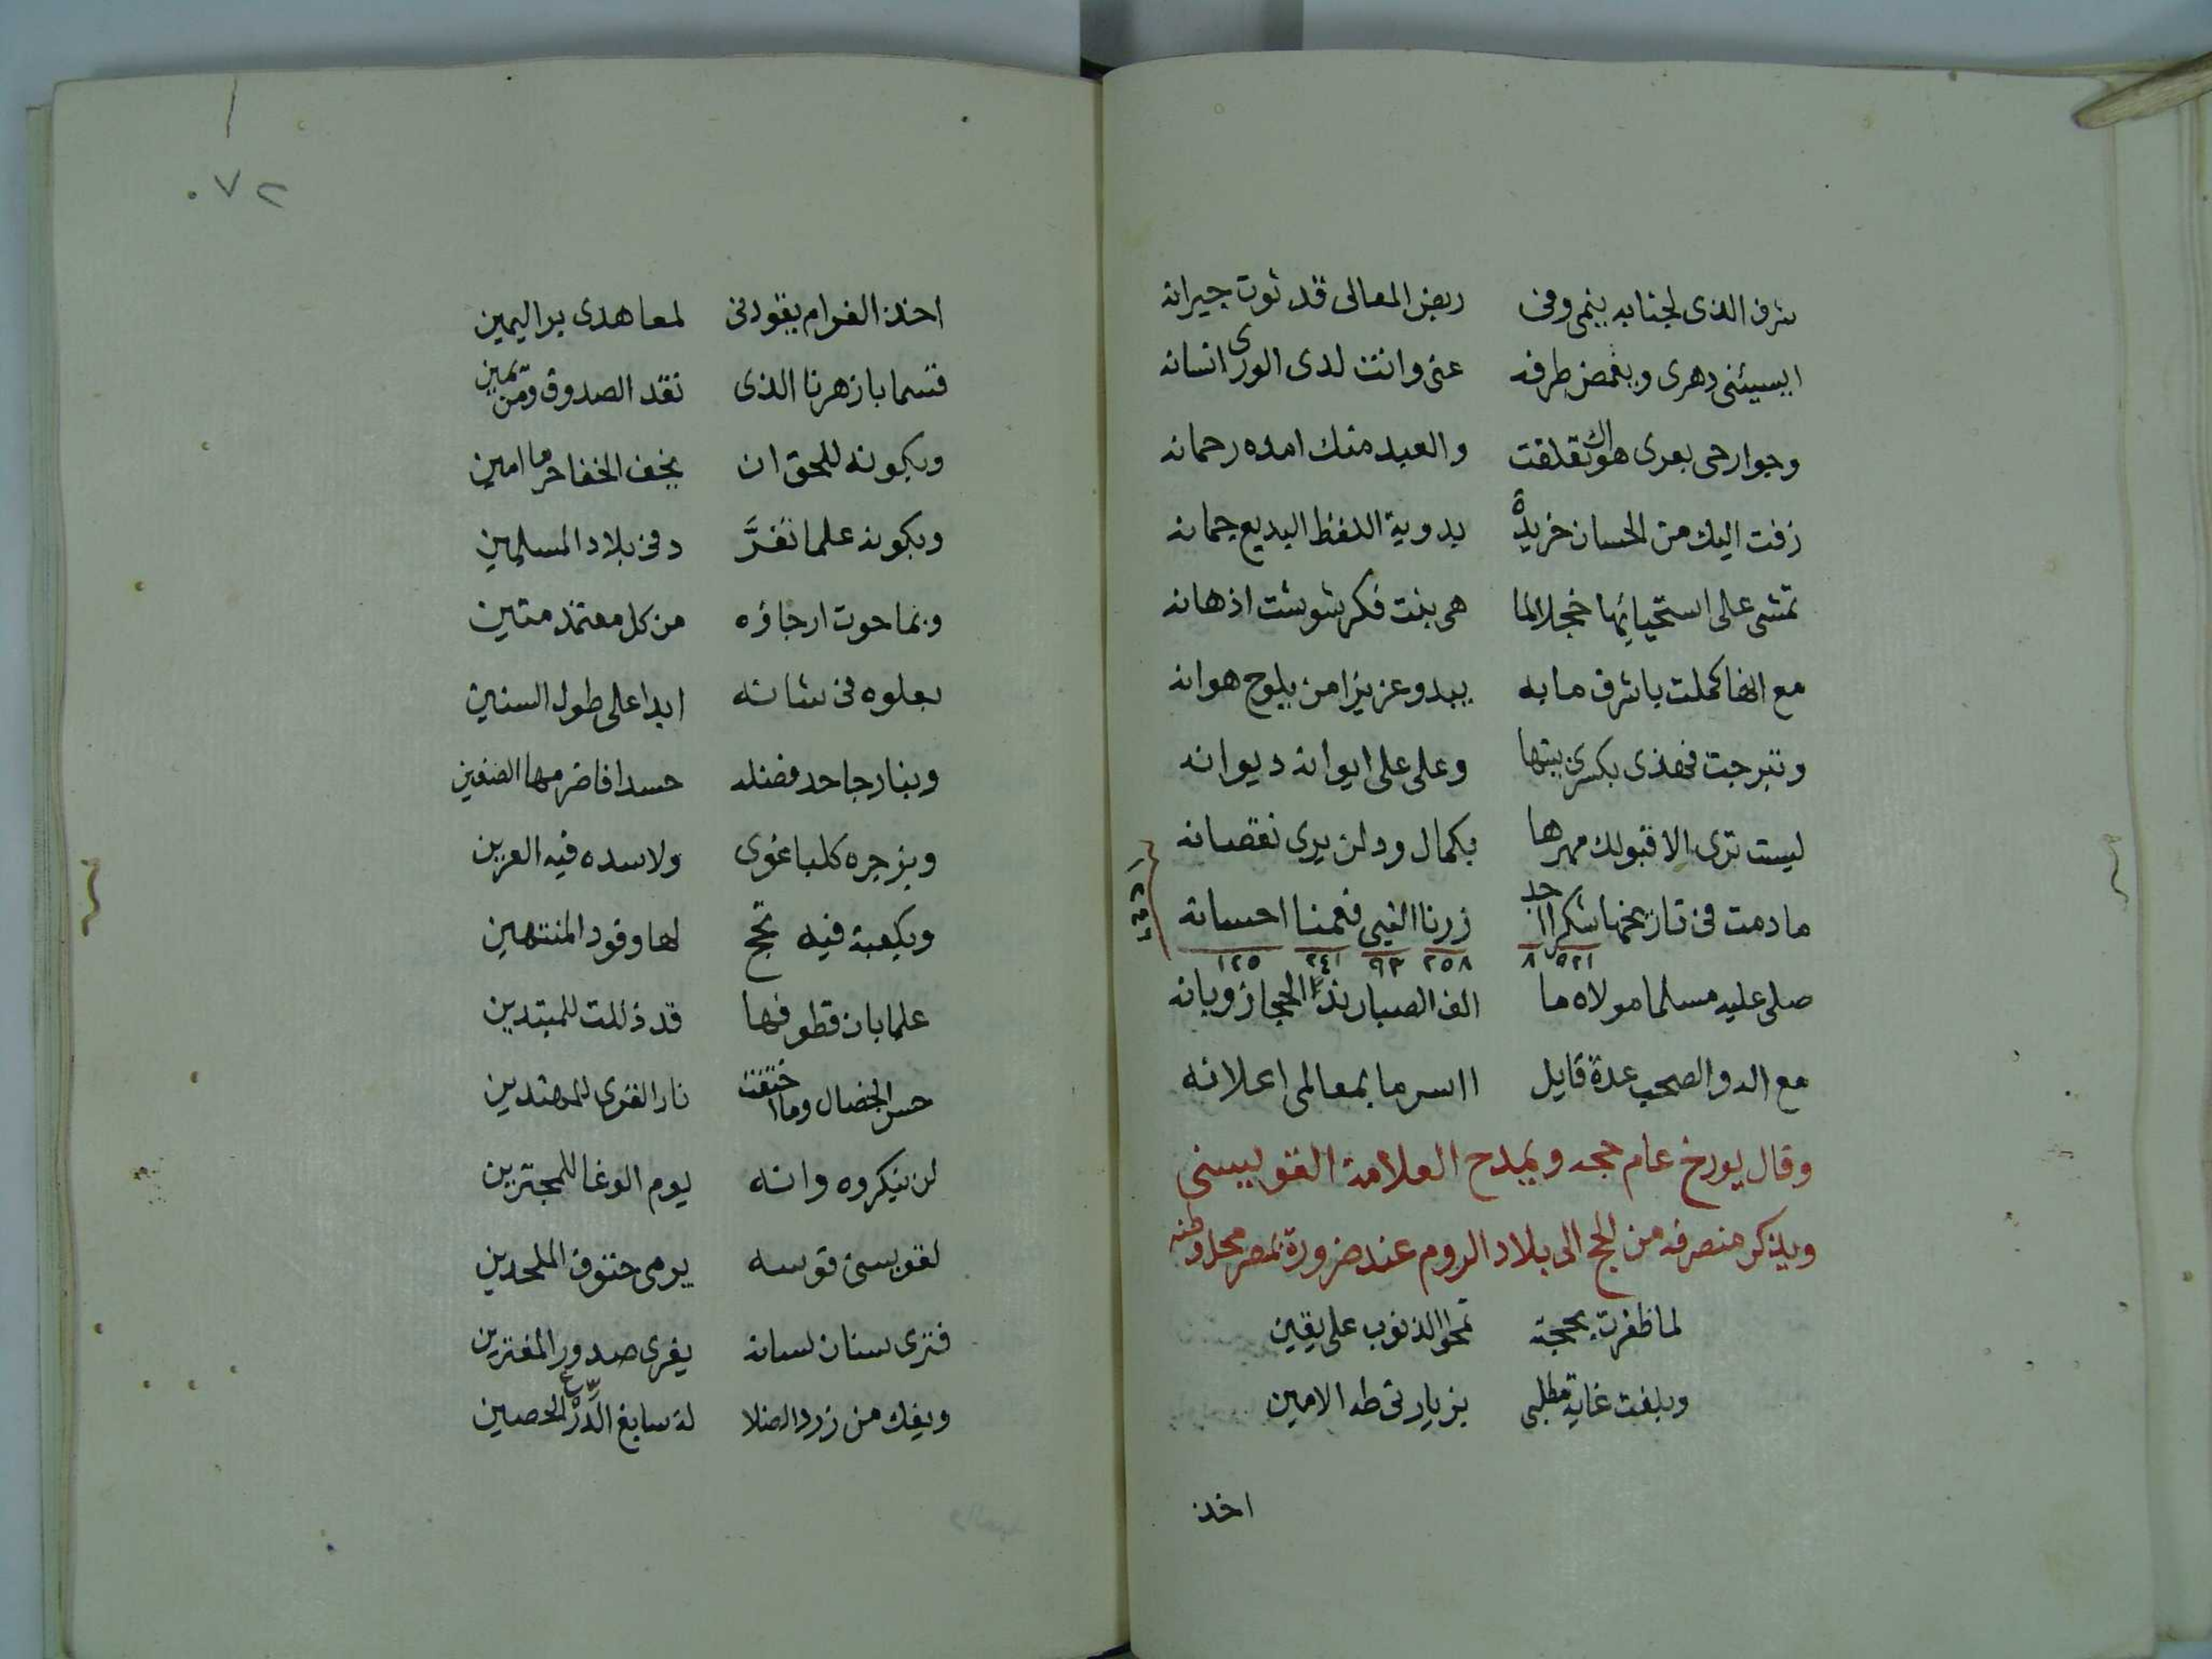 شرف الذى لجنابه ينمى وفى ربض المعالى قد ثوت جيرانه
ايسيئنى دهرى ويغمض طرفه عنى وانت لدى الورى انسانه
وجوارحى بعرى هواك تعلقت والعبد منك امده رحمانه
زفت اليك من الحسان خريدة بدوية اللفظ البديع جمانه
تمشى على استحيائها خجلا لما هى بنت فكر شوشت اذهانه
مع انها كملت يا شرف مابه يبدو عزيزا من يلوح هوانه
وتبرجت فهذى بكسرى بيتها وعلى على ايوانه ديوانه
ليست ترى الا قبولك مهرها بكمال ود لن يرى نقصانه
مادمت فى تاريخها شكرا اجد زرنا النبى فعمنا احسانه
٥٢١ ٨ ٢٥٨ ٩٣ ٢٤١ ١٢٥
صلى عليه مسلما مولاه ما الف الصبا رند الحجاز وبانه
مع اله والصحب عدة قايل السر ما بمعالمى اعلانه
وقال يورخ عام حجه ويمدح العلامة القويسنى
ويذكر منصرفه من الحج الى بلاد الروم عند ضرورة بمصر محل وطنه
لما ظفرت بحجة تمحو الذنوب على يقين
وبلغت غاية مطلبى بزيارتى طه الامين
اخذ
٠٧٢
اخذ الغرام يقودنى لمعاهدى بر اليمين
قسما بازهرنا الذى نقد الصدوق ومن يمين
وبكونه للحق ان يخف الخفا حرما امين
وبكونه علما تفرَّ د فى بلاد المسلمين
وبما حوت ارجاؤه من كل معتمد متين
بعلوه فى شانه ابدا على طول السنين
وبنار جاحد فضله حسدا فاضرمها الضغين
وبزجره كلبا غوى ولاسده فيه العرين
وبكعبة فيه تحج لها وفود المنتهين
علما بان قطوفها قد ذللت للمبتدين
حسن الخصال وما اختفت نار القرى للمهتدين
لن ينكروه وانه يوم الوغا للمجترين
لقويسنى قوسه يرمى حتوف الملحدين
فترى سنان لسانه يفرى صدور المفترين
ويفك من زرد الضلا لة سابغ الدرع الحصين